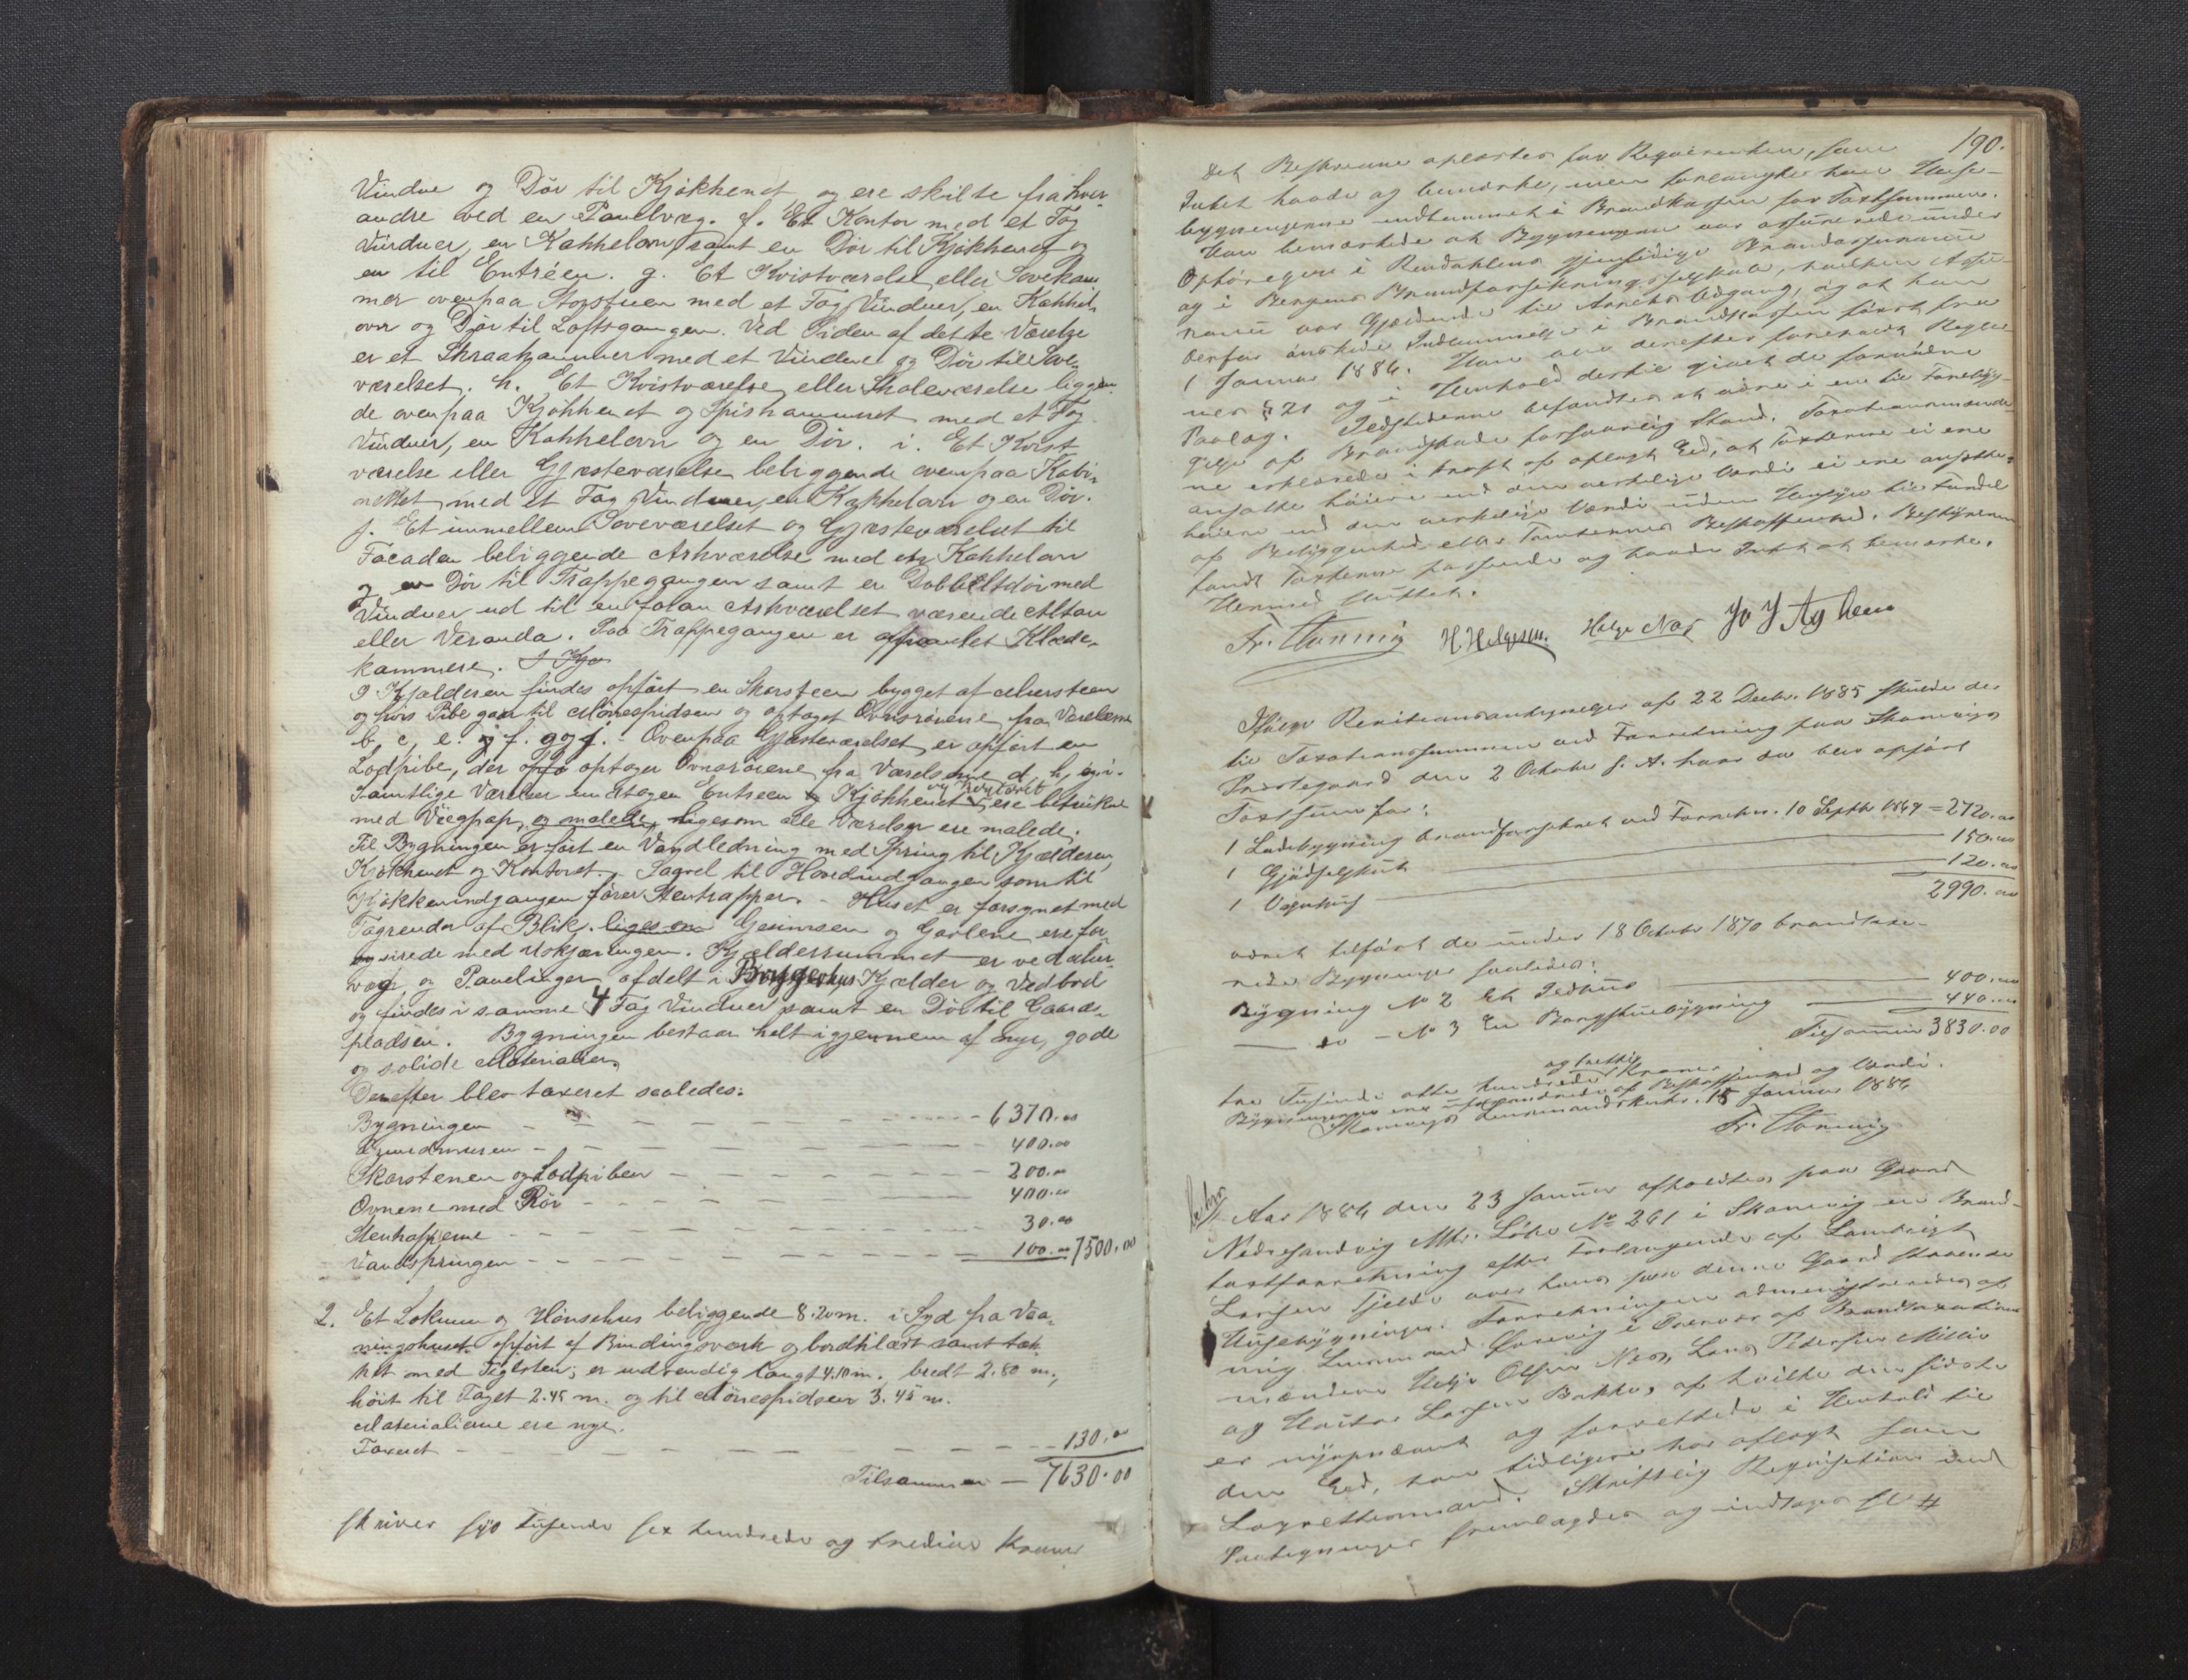 Vindue og Dör til Kjökkenet og ere skilte fra hver-
andre ved en Panelvæg. f. Et Kontor med et Fag
Vinduer, en Kakkelovn samt en Dör til Kjökkenet og
en til Entréen. g. Et Kvistværelse eller Sovekam-
mer ovenpaa Storstuen med et Fag Vinduer, en Kakkel-
ovn og Dör til Loftsgangen. Ved Siden af dette Værelse
er et Skraakammer med et Vindue og Dör til Sove-
værelset. h. Et Kvistværelse eller Skoleværelse liggen-
de ovenpaa Kjökkenet og Spiskammeret med et Fag
Vinduer, en Kakkelovn og en Dör. i. Et Kvist-
værelse eller Gjæsteværelse beliggende ovenpaa Kabi-
nettet med et Fag Vinduer, en Kakkelovn og en Dör.
j. Et immellem Soveværelset og Gjæsteværelset til
Facaden beliggende Arkværelse med en Kakkelovn
og en Dör til Trappegangen samt en Dobbeltdör med
Vinduer ud til en foran Arkværelset værende Altan
eller Veranda. Paa Trappegangen er afpanlet Klæde-
kammere. I Kjæ
I Kjælderen findes opfört en Skorsteen bygget af Mursteen
og hvis Pibe gaar til Mönespidsen og optaget Ovnsrörene fra Værelserne
b, c, e. f. g og j. Ovenpaa Gjæsteværelset er opfört en
Lodpibe, der opta optager Ovnsrörene fra Værelserne d, h, og i.
Samtlige Værelser undtagen Entreen og Kjökkenet og Kontoret ere betrukne
med Vægpap, og malede, ligesom alle Værelser ere malede.
Til Bygningen er fört en Vandledning med Spring til Kjælderen,
Kjökkenet og Kontoret. Saavel til Hovedindgangen som til
Kjökkenindgangen förer Stentrapper. - Huset er forsynet med
Tagrender af Blik. ligesom Gesimsen og Gavlene ere for-
synede med Udskjæringer. Kjælderrummet er ved Mur-
væg og Panelinger afdelt i Bryggerhus Kjælder og Vedbod
og findes i samme 4 Fag Vinduer samt en Dör til Gaards-
pladsen. Bygningen bestaar helt igjennem af nye, gode
og solide Materialier.
Derefter blev taxeret saaledes:
Bygningen - - - - - - 6370.00
Grundmuren - - - - - 400.00
Skorstenen og Lodpiben - - - - 200.00
Ovnene med Rör - - - - 400.00
Stentrapperne - - - - 30.00
Vandspringen - - - - 100.00 7500.00
2. Et Lokum og Hönsehus beliggende 8.20 m. i Syd fra Vaa-
ningshuset opfört af Bindingsværk og bordklædt samt tæk-
ket med Teglsten; er udvendig langt 4.10 m. bredt 2.80 m.,
höit til Taget 2.45 m. og til Mönespidsen 3.45 m.
Materialierne ere nye.
Taxeret - - - - - - 130.00
Tilsammen - 7630.00
skriver syv Tusende sex hundrede og tredive Kroner
190.
Det Beskrevne oplæstes for Reqvirenten, som
Intet havde at bemærke, men forlangte han Huse-
bygningerne indtemmet i Brandkassen for Taxtsummen.
Han bemærkede at Bygningerne var assurerede under
Opförelsen i Rendahlens gjensidige Brandassurance
og i Bergens Brandforsikringsselskab, hvilken Assu-
rance var Gjældende til Aarets Udgang, og at han
derfor önskede Indtemmelse i Brandkassen först fra
1 Januar 1886. Han blev derefter foreholdt Regle-
mes § 21 og i Henhold dertil givet de fornödne
Paalæg. Ildstederne befandtes at være i en til Forebyg-
gelse af Brandskade forsvarlig Stand. Taxationsmænde-
ne erklærede i kraft af aflagt Eed, at Taxterne ei ere
ansatte höiere end den virkelige Værdi ei ere ansatte
höiere end den virkelige Værdi uden Hensyn til Fordel
af Beliggenhed eller Tomternes Beskaffenhed. Bestyreren
fandt Taxterne passende og havde Intet at bemærke.
Hermed sluttet.
Fr. Hornnig H. Helgesen. Helge Næs Jo J Aghem
Ifölge Revisionsantegnelse af 22 Decbr. 1885 skulde der
til Taxationssummen ved Forretning paa Skonevigs
Prestegaard den 2 Octobr f. A. have der blev opfört
Taxtsum for:
1 Ladebygning brandforsikret ved Forretn. 10 Septbr 1869 = 2720.00
1 Gjödselskur 150.00
1 Vognhus 120.00
2990.00
været tilfört de under 18 October 1870 brandtaxe-
rede Bygninger saaledes:
Bygning No 2 Et Ildhuus 400.00
do - No 3 En Borgstuebygning 440.00
Tilsammen 3830.00
tre Tusinde otte hundrede og tretti Kroner
Bygningerne ere uforandrede af Beskaffenhed og Værdi.
Skonevigs Lensmandskontr. 15 Januar 1886
Fr. Hornnig
Aar 1886 den 23 Januar afholdtes paa Gaard
Nedresandvig Mtr. Löbe No 261 i Skonevig en Brand-
taxtforretning efter Forlangende af Landvigt
Larsen Fjelde over hans paa denne Gaard staaende
Husebygninger. Forretningen administreredes af
mig Lensmand Hornnig i Overvær af Brandtaxations
mændene Helge Olsen Næs, Lars Pedersen Milje
og Halvor Larsen Bakke, af hvilke den sidste
er nyopnævnt og forrettede i Henhold til
den Eed, han tidligere har aflagt som
Lagrettemand. Skriftlig Reqvisition med
Paategninger fremlagdes og indtages sl #